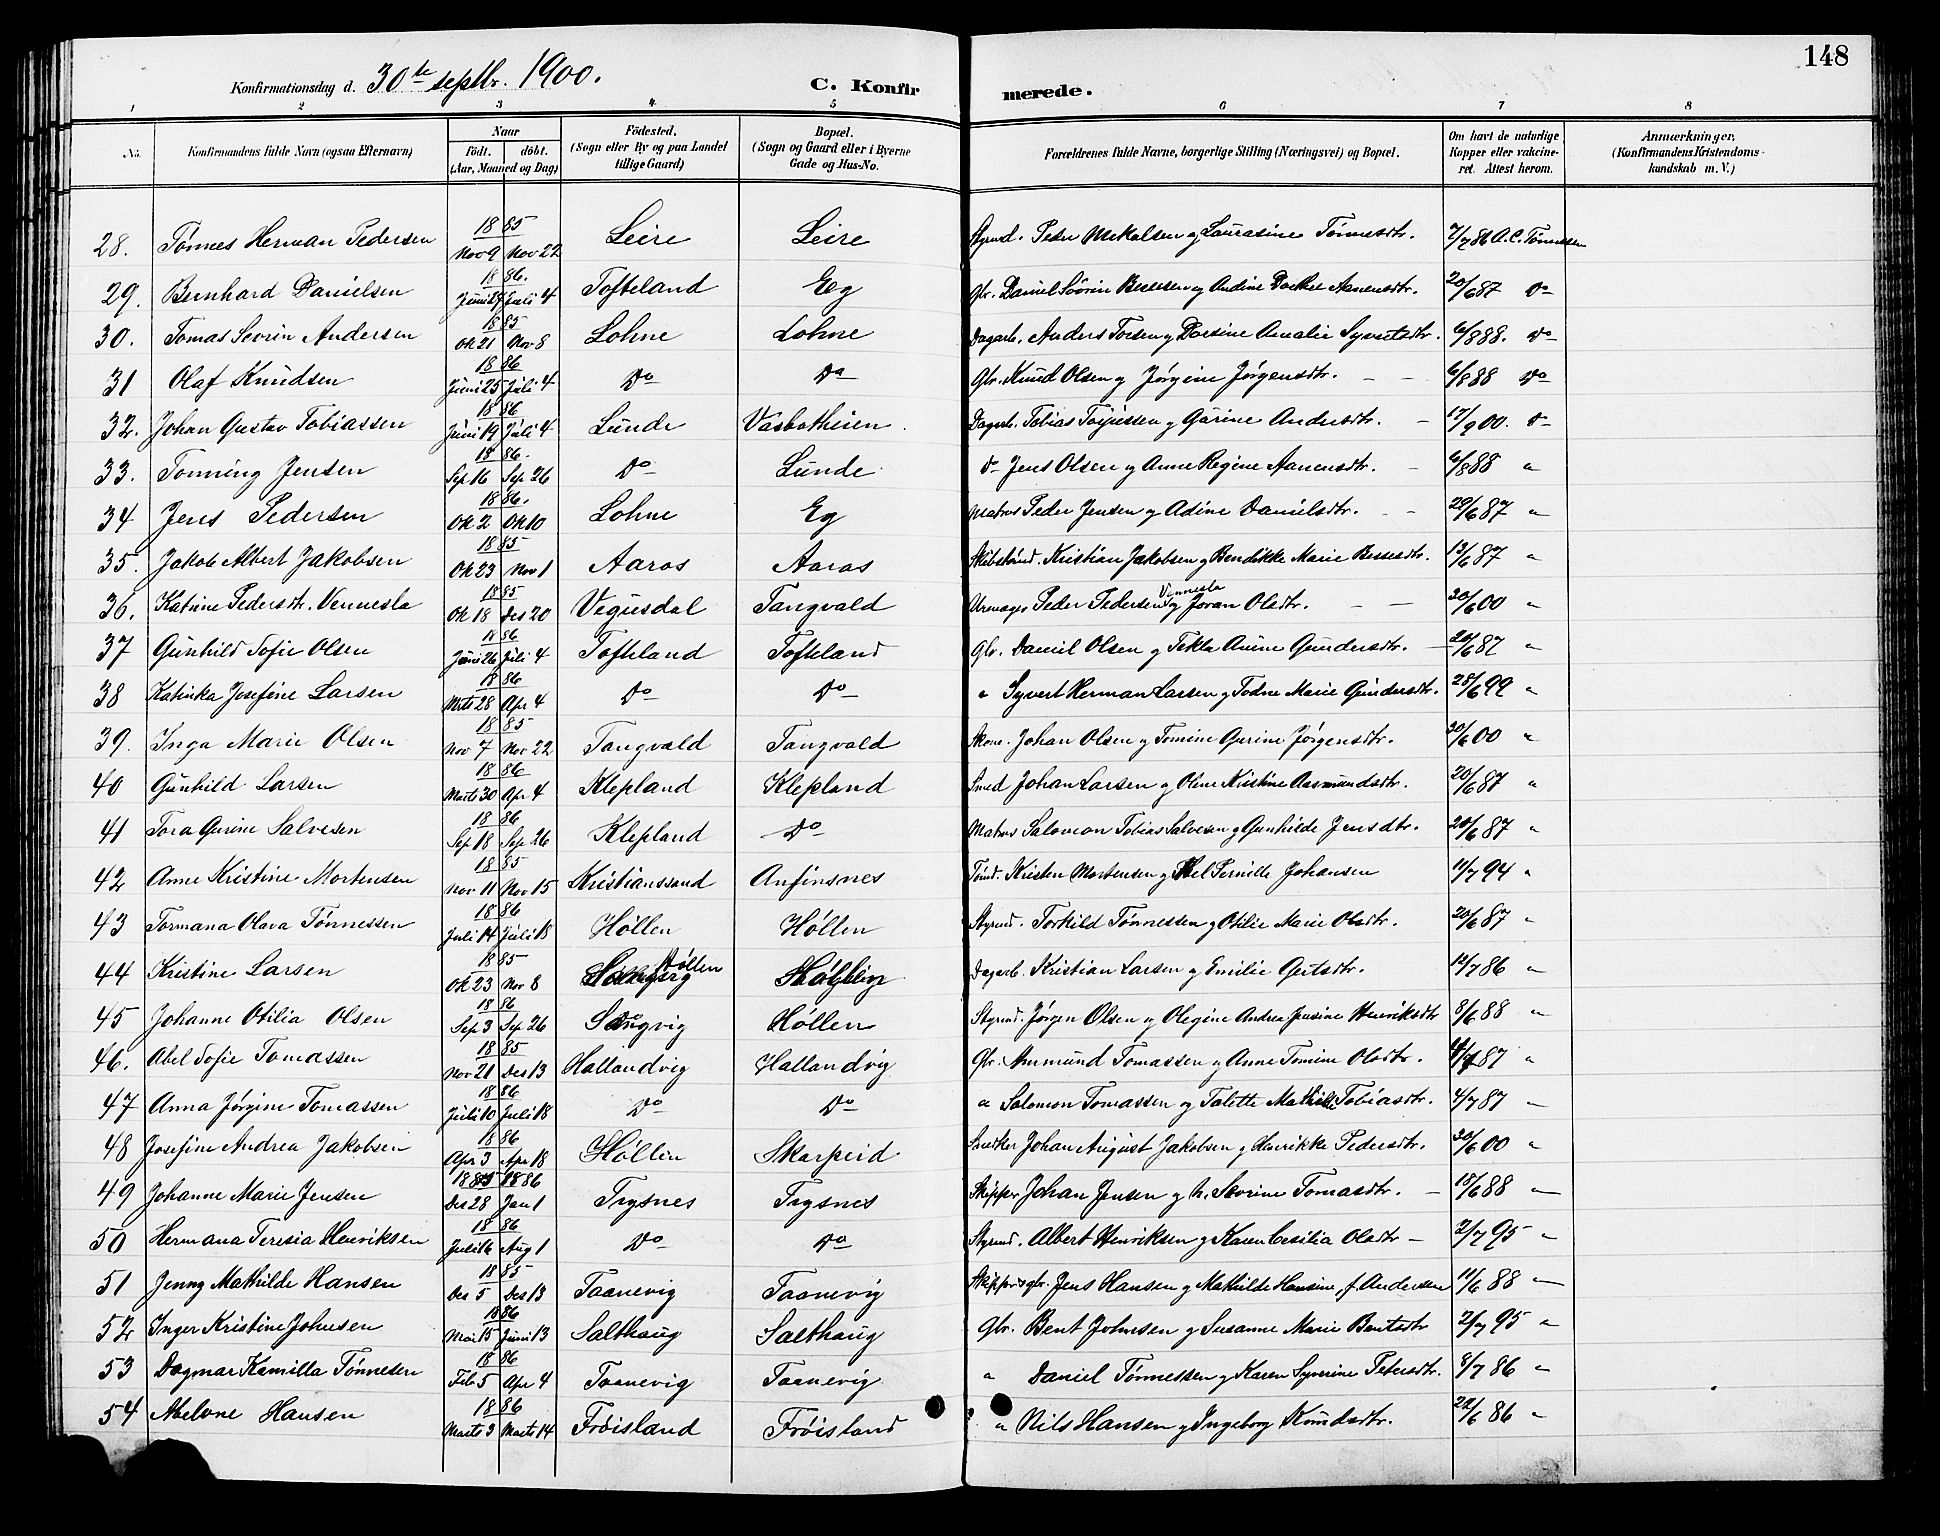 148
Konfirmationsdag d. 30te septbr. 1900. C. Konfirmerede.
1 2 3 4 5 6 7 8
No. Konfirmandens fulde Navn (ogsaa Efternavn) Naar födt. döbt. (Aar, Maaned og Dag) Födested. (Sogn eller By og paa Landet tillige Gaard) Bopæl. (Sogn og Gaard eller i Byerne Gade og Hus-No. Forældrenes fulde Navne, borgerlige Stilling (Næringsvei) og Bopæl. Om havt de naturlige Kopper eller vakcineret. Attest herom. Anmærkninger. (Konfirmandens Kristendomskundskab m. V.)
28. Tønnes Herman Pedersen 1885 Nov 9 Nov 22 Leire Leire Styrmd. Peder Mekalsen og Laurasine Tønnesdtr. 7/7 86 A.C. Tønnessen
29. Bernhard Danielsen 1886. Juni 27 Juli 4 Tofteland Eg Gbr. Daniel Söörin Bessesen og Andine Dorthe Aanensdtr. 20/6 87 Do
30. Tomas Sevrin Andersen 1885 Ok 21 Nov 8 Lohne Lohne Dagarb. Anders Torsen og Dorsine Amalie Syvertsdtr. 6/8 88. Do
31 Olaf Knudsen 1886 Juni 25 Juli 4 Do Do Gbr. Knud Olsen og Jørgine Jørgensdtr. 6/8 88 Do
32. Johan Gustav Tobiassen 1886 Juni 19 Juli 4 Lunde Vasbotheien. Dagarb. Tobias Torjussen og Gurine Andersdtr. 17/9 00. Do
33. Tonning Jensen 1886. Sep 16 Sep 26 Do Lunde Do Jens Olsen og Anne Regine Aanensdtr. 6/8 88 "
34 Jens Pedersen 1886. Ok 2 Ok 10 Lohne Eg Matros Peder Jensen og Adine Danielsdtr. 20/6 87 "
35. Jakob Albert Jakobsen 1885 Ok 23 Nov 1 Aaros Aaros Skibstømd. Kristian Jakobsen og Bendikke Marie Bessesdtr. 13/6 87 "
36. Katrine Pedersdtr. Vennesla 1885 Ok 18 Des 20 Vegusdal Tangvald Urmager Peder Pedersen Vennesla og Joran Olsdtr. 30/6 00 "
37 Gunhild Sofie Olsen 1886 Juni 26 Juli 4 Tofteland Tofteland Gbr. Daniel Olsen og Tekla Anine Gundersdtr. 20/6 87 "
38 Katinka Josefine Larsen 1886 Mrts 28 Apr 4 Do Do " Syvert Herman Larsen og Todne Marie Gundersdtr. 28/6 99 "
39. Inga Marie Olsen 1885 Nov 7 Nov 22 Tangvald Tangvald Skom. Johan Olsen og Tomine Gurine Jørgensdtr. 30/6 00 "
40 Gunhild Larsen 1886 Marts 30 Apr 4 Klepland Klepland Smed Johan Larsen og Olene Kristine Aasmundsdtr. 20/6 87 "
41 Tora Gurine Salvesen 1886 Sep 18 Sep 26 Klepland Do Matros Salomon Tobias Salvesen og Gunhilde Jensdtr. 20/6 87 "
42 Anne Kristine Mortensen 1885 Nov 11 Nov 15 Kristianssand Anfinsnes Tømd. Kristen Mortensen og Abel Pernille Johansen 11/7 94 "
43 Tormana Olava Tønnessen 1886 Juli 14 Juli 18 Høllen Høllen Styrmd. Torkild Tønnessen og Otilie Marie Olsdtr. 20/6 87 "
44 Kristine Larsen 1885 Ok 23 Nov 8 Høllen Høllen Dagarb. Kristian Larsen og Emilie Gutsdtr. 12/7 86 "
45 Johanne Otilia Olsen 1886 Sep 3 Sep 26 Songvig Høllen Styrmd. Jørgen Olsen og Olegine Andrea Jensine Henriksdtr 8/6 88 "
46. Abel Sofie Tomassen 1885 Nov 21 Des 13 Hallandvig Hallandvig Gbr. Ammund Tomassen og Anne Tomine Olsdtr. 4/7 87 "
47 Anna Jørgine Tomassen 1886 Juli 10 Juli 18 Do Do " Salomon Tomassen og Talette Mathilde Tobiasdtr. 4/7 87 "
48 Josefine Andrea Jakobsen 1886 Apr 3 Apr 18 Høllen Skarpeid Snedker Johan August Jakobsen og Henrikke Pedersdtr. 30/6 00 "
49 Johanne Marie Jensen 1885 1886 Des 28 Jan 1 Trysnes Trysnes Skipper Johan Jensen og h. Sevrine Tomasdtr. 18/6 88 "
50 Hermana Teresia Henriksen 1886 Juli 6 Aug 1 Do Do Styrmd. Albert Henriksen og Karen Cesilia Olsdtr 2/7 95 "
51 Jenny Mathilde Hansen 1885 Des 5 Des 13 Taanevig Taanevig Skipper og gbr. Jens Hansen og Mathilde Hansine, f. Andersen 11/6 88 "
52 Inger Kristine Johnsen 1886 Mai 15 Juni 13 Salthaug Salthaug Gbr. Bent Johnsen og Susanne Marie Bentsdtr 2/7 95 "
53 Dagmar Kamilla Tønnesen 1886 Feb 5 Apr 4 Taanevig Taanevig " Daniel Tønnessen og Karen Syverine Petersdtr. 8/7 86 "
54 Abelone Hansen 1886 Marts 3 Marts 14 Frøisland Frøisland " Nils Hansen og Ingeborg Knudsdtr. 22/6 86 "